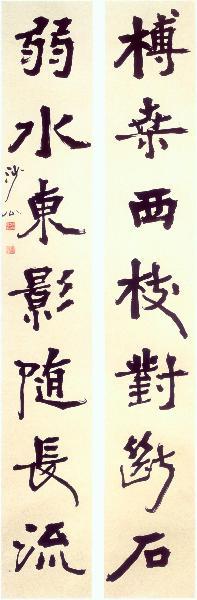 榑桒西枝對斷石
弱水東影隨長流
沙